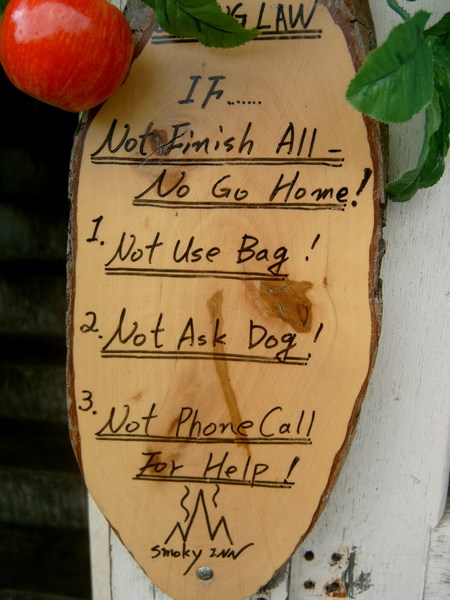 LAW
IF......
Not Finish All –
No Go Home!
1. Not Use Bag!
2. Not Ask Dog!
3. Not Phone Call
For Help!
Smoky INN